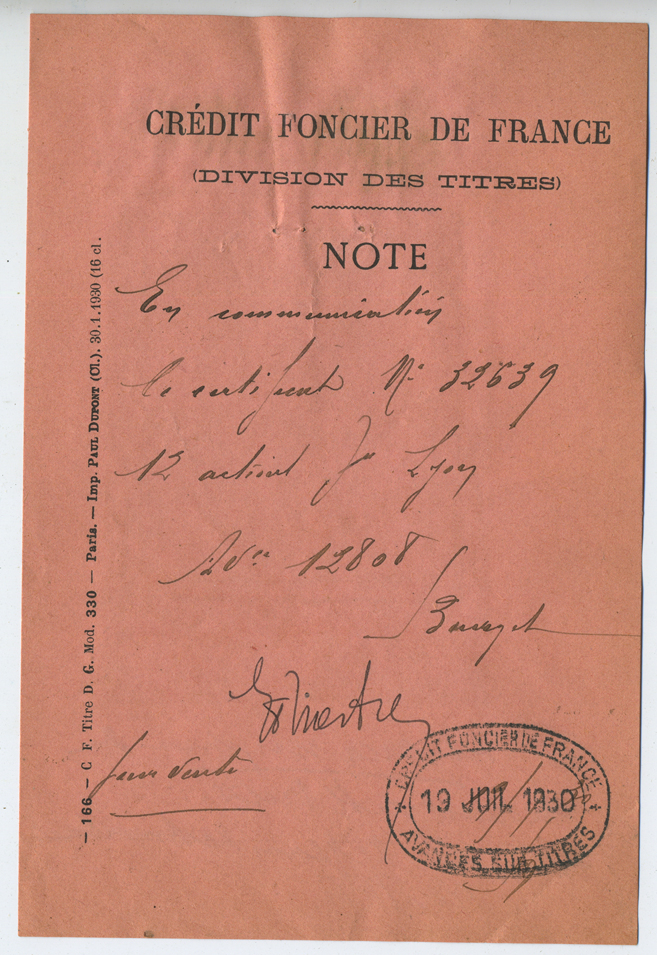 CRÉDIT FONCIER DE FRANCE
(DIVISION DES TITRES)
NOTE
En communication
le certificat N° 32639
12 actions Lyon
12808
pour vente
CRÉDIT FONCIER DE FRANCE
19 JUIL 1930
AVANCES SUR TITRES
— 166 — C F. Titre D. G. Mod. 330 — Paris. — Imp. PAUL DUPONT (Cl.). 30.1.1930 (16 cl.